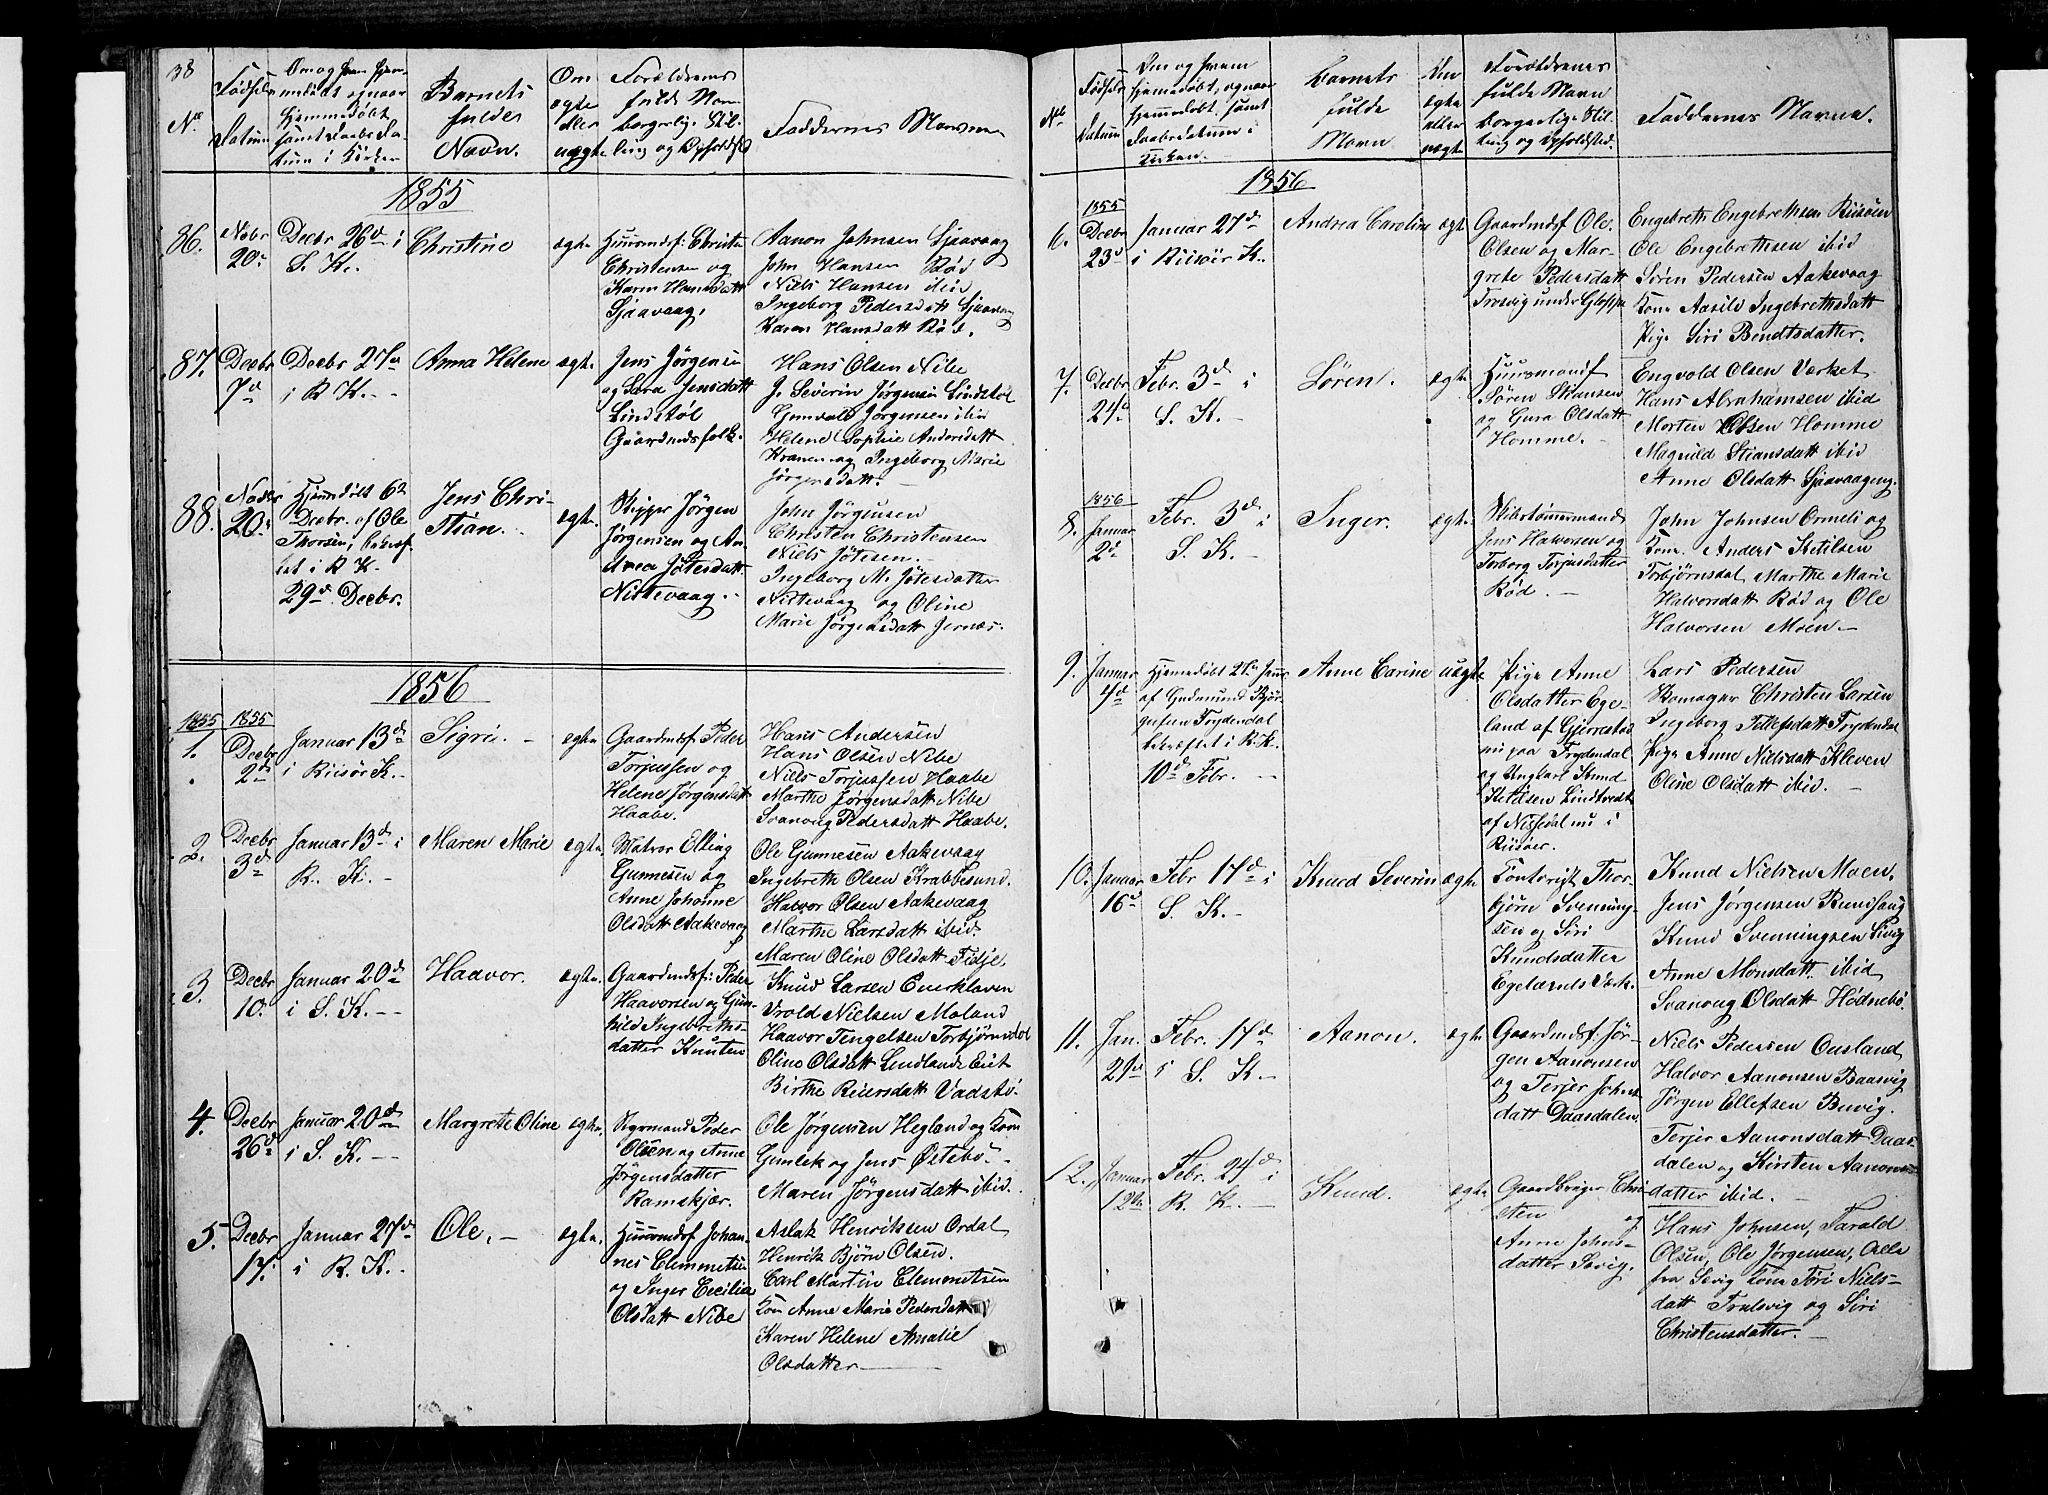 38
No.
Fødsels
Datum
Om og hvem hjem-
medøbt og naar
hjemmedøbt
samt Daabs Da-
tum i Kirken
Barnets
fulde
Navn.
Om
ægte
eller
uægte
Forældrenes
fulde Navn
borgerlig Stil-
ling og Opholdsted
Faddernes Navne
1855
86.
Nobr
20.
Decbr 26d i
S. K.
Christine
ægte
Huusmdsf: Christen
Christensen og
Karen Hansdatt
Sjaavaag.
Aanon Johnsen Sjaavaag
John Hansen Rød
Niels Hansen ibid
Ingeborg Pedersdatt Sjaavaag
Karen Hansdatt Rød.
87.
Decbr
7d
Decbr 27de
i R K. -
Anna Helene
ægte.
Jens Jørgensen
og Sara Jensdatt
Lindstøl
Gaardmdsfolk.
Hans Olsen Nibe
J. Severin Jørgensen Lindstøl
Gunvald Jørgensen ibid
Helene Sophie Andersdatt
Kranen og Ingeborg Marie
Jørgensdatt.
88.
Novbr
20d
Hjemmedøbt 6te
Decbr. af Ole
Thorsen, bekræf-
tet i R K.
29d Decbr.
Jens Chri-
stian.
ægte.
Skipper Jørgen
Jørgensen og An-
drea Jøtesdatt.
Nistevaag.
John Jørgensen
Christen Christensen
Niels Jøtesen
Ingeborg M. Jøtesdatter
Nistevaag og Oline
Marie Jørgensdatt Jernæs.
1856
1855
1855
1.
Decbr
2d
Januar 13d
i Riisør K.
Sigri. -
ægte
Gaardmdsf. Peder
Torjussen og
Helene Jørgensdatt
Haabe.
Hans Andersen
Hans Olsen Nibe
Niels Torjussen Haabe
Marthe Jørgensdatt Nibe
Svanoug Pedersdatt Haabe.
2.
Decbr
3d
Januar 13d i
R. K. -
Maren Marie
ægte
Matros Elling
Gunnesen og
Anne Johanne
Olsdatt Aakevaag
Ole Gunnesen Aakevaag
Ingebreth Olsen Krabbesund.
Halvor Olsen Aakevaag
Marthe Larsdatt ibid.
Maren Oline Olsdatt Fidje.
3.
Decbr
10.
Januar 20d
i S. K. -
Haavor.
ægte.
Gaardmdsf: Peder
Haavorsen og Gun-
hild Ingebreths-
datter Kunten
Knud Larsen Everkleven
Vrold Nielsen Moland
Haavor Tengelsen Torbjørnsdal
Oline Olsdatt Lindlands Eiet
Birthe Reiersdatt Vadstø.
4.
Decbr
26d
Januar 20d
i S. K. -
Margrete Oline
ægte.
Peder
Olsen og Anne
Jørgensdatter
Ramskjær.
Ole Jørgensen Hegland og Kom
Gimlek og Jens Østebø. -
Maren Jørgensdatt ibid.
5.
Decbr
17.
Januar 27d
i R. K. -
Ole. -
ægte.
Huusmdsf Johan-
nes Clemmetsen
og Inger Cecilia
Olsdatt Nibe
Aslak Henriksen Ordal
Henrik Bjørn Olsen.
Carl Martin Clemmetsen
Kom Anne Marie Pedersdatt
Karen Helene Amalie
Olsdatter
No.
Fødsels
Datum
Om og hvem
hjemmedøbt, og naar
hjemmedøbt, samt
Daabsdatum i
Kirken.
Barnets
fulde
Navn
Om
ægte
eller
uægte
Forældrenes
fulde Navn
borgerlige Stil-
ling og Opholdsted.
Faddernes Navne.
1856
1855
6.
Decbr
23d
Januar 27d
i Riisør K.
Andrea Caroline
ægte
Gaardmdsf Ole
Olsen og Mar-
grete Pedersdatt
Trosvig under Gloppe
Engebreth Engebrethsen Riisøen
Ole Engebrethsen ibid
Søren Pedersen Aakevaag
Kone Aasild Ingebrethsdatt
Pige Siri Bendtsdatter.
7.
Decbr
24d
Febr. 3d i
S. K. -
Søren.
ægte
Huusmandsf
Søren Stiansen
og Gura Olsdatt
Homme.
Engvold Olsen Værket
Hans Abrahamsen ibid
Morten Olsen Homme
Magnild Stiansdatt ibid
Anne Olsdatt Sjaavaageng.
1856
8.
Januar
2d
Febr. 3d i
S. K. -
Inger.
ægte.
Skibstømmermand
Jens Halvorsen og
Torborg Torjusdatter
Rød. -
John Johnsen Ormeli og
Kone. Anders Ketilsen
Torbjørnsdal, Marthe Marie
Halvorsdatt Rød og Ole
Halvorsen Moen. -
9.
Januar
Hjemmedøbt 27de Janr
af Gudmund Bjør-
gufsen Frydendal
bekræftet i R. K.
10d Febr. -
Anne Carine
uægte
Pige Anne
Olsdatter Ege-
land af Gjerrestad
nu paa Frydendal
og Ungkarl Knud
Ketilsen Lindtvedt
af Nissedal nu i
Riisøer.
Lars Pedersen
Bomager Christen Larsen
Ingeborg Tellefsdatt Frydendal
Pige Anne Nielsdatt Kleven
Oline Olsdatt ibid. -
10.
Januar
16d
Febr 17d i
S. K. -
Knud Severin
ægte
Thor-
bjørn Svenning-
sen og Siri
Knudsdatter
Egelands Værk.
Knud Nielsen Moen.
Jens Jørgensen Rundhaug
Knud Svenningsen Sivig
Anne Monsdatt ibid
Svanoug Olsdatt Hødnebø.
11.
Jan.
29d
Febr. 17d
i S. K. -
Aanon.
ægte
Gaardmdsf. Jør-
gen Aanonsen
og Terjer Johns-
datt Daasdalen.
Niels Pedersen Ousland
Halvor Aanonsen Baasvig
Jørgen Ellefsen Buvig.
Terjer Aanonsdatt Daas-
dalen og Kirsten Aanons-
datter ibid. -
12.
Januar
12te
Febr. 24d i
R. K. -
Knud.
ægte
Gaardbruger Chri-
sten og
Anne Johns-
datter Sevig.
Hans Johnsen, Tarald
Olsen, Ole Jørgensen, Alle
fra Sevig Kone Siri Niels-
datt Trulsvig og Siri
Christensdatter. -